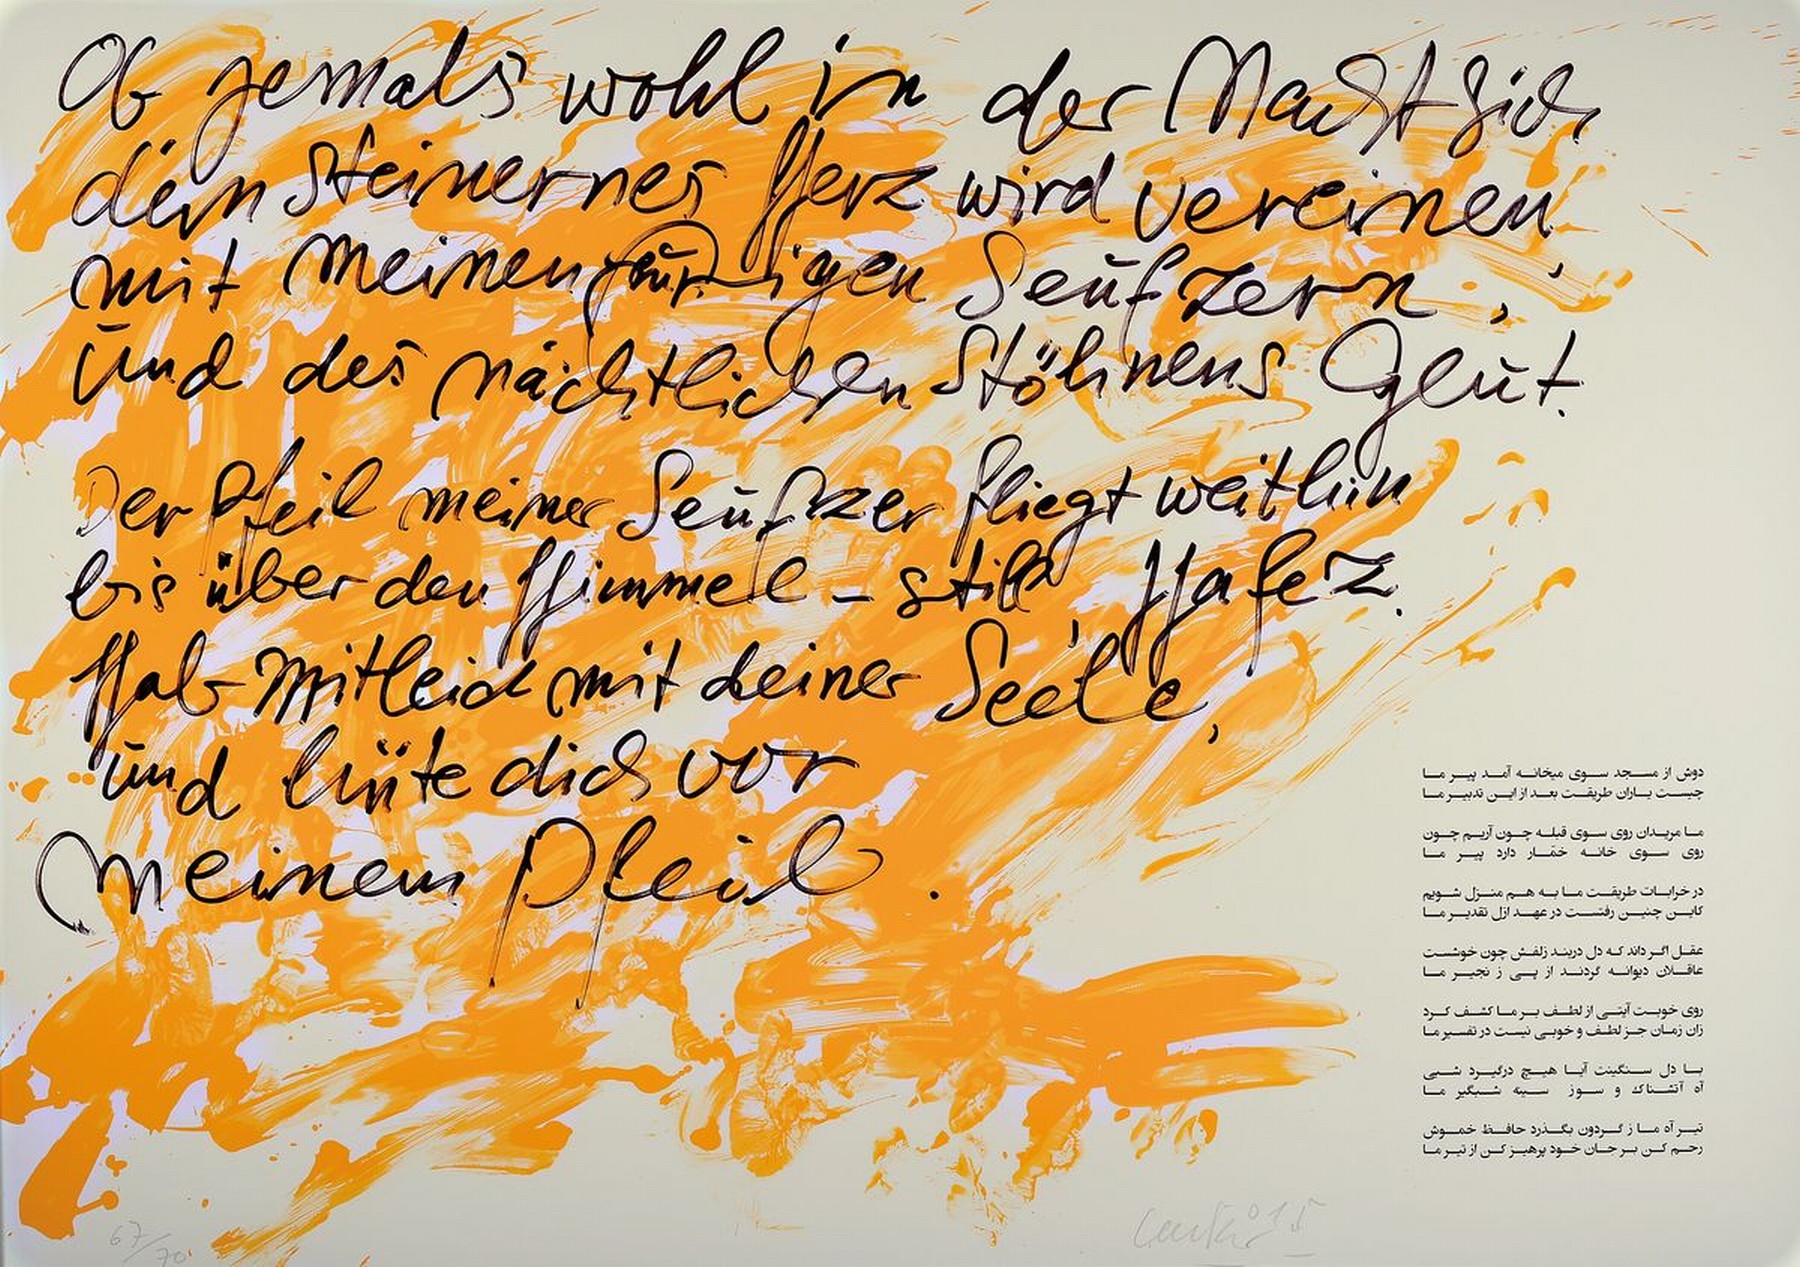 Ob jemals wohl in der Nacht sich
dein steinernes Herz wird vereinen
mit meinen feurigen Seufzern,
und des nächtlichen Stöhnens Glut.
Der Pfeil meiner Seufzer fliegt weithin
bis über den Himmel – still, Hafez.
Hab Mitleid mit deiner Seele,
und hüte dich vor
meinem Pfeil.
دوش از مسجد سوی میخانه آمد پیر ما
چیست یاران طریقت بعد از این تدبیر ما
ما مریدان روی سوی قبله چون آریم چون
روی سوی خانه خمّار دارد پیر ما
در خرابات طریقت ما به هم منزل شویم
کاین چنین رفتست در عهد ازل تقدیر ما
عقل اگر داند که دل دربند زلفش چون خوشست
عاقلان دیوانه گردند از پی ز نجیر ما
روی خوبت آیتی از لطف بر ما کشف کرد
زان زمان جز لطف و خوبی نیست در تفسیر ما
با دل سنگینت آیا هیچ درگیرد شبی
آه آتشناک و سوز سینه شبگیر ما
تیر آه ما ز گردون بگذرد حافظ خموش
رحم کن بر جان خود پرهیز کن از تیر ما
67/70